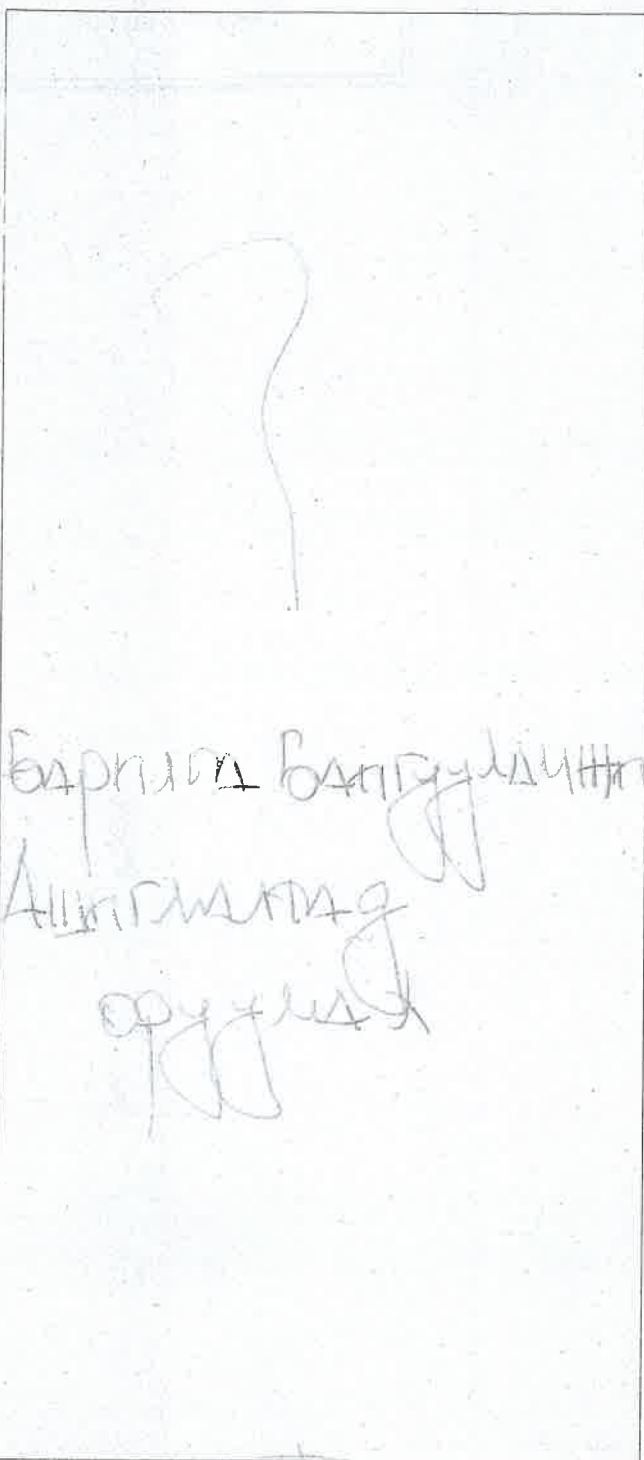 Барилга Байгууламжи
Ашиглалтад
оруулах